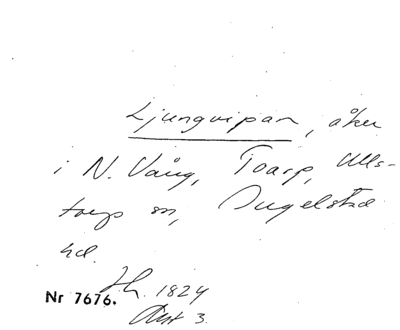 Ljungvipan, åker
i N. Vång, Toarp, Ulls-
torps sn, Ingelstad
hd.
Nr 7676. Jh. 1824
Akt 3.